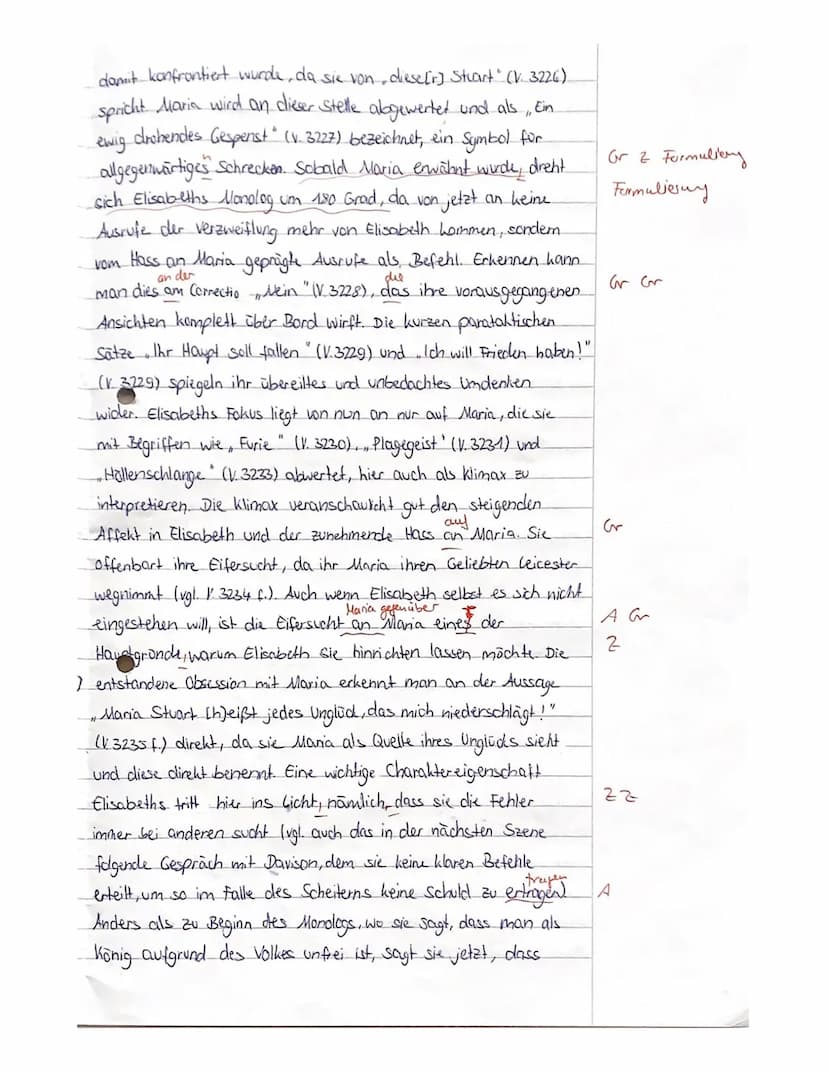 damit konfrontiert wurde, da sie von „diese[r] Stuart“ (V. 3226)
spricht. Maria wird an dieser Stelle abgewertet und als „Ein
ewig drohendes Gespenst“ (V. 3227) bezeichnet, ein Symbol für
allgegenwärtiges Schrecken. Sobald Maria erwähnt wurde, dreht
n
Gr Z Formulierung
sich Elisabeths Monolog um 180 Grad, da von jetzt an keine
Formulierung
Ausrufe der Verzweiflung mehr von Elisabeth kommen, sondern
vom Hass an Maria geprägte Ausrufe als Befehl. Erkennen kann
an der die
man dies am Correctio „Nein“ (V. 3228), das ihre vorausgegangenen
Gr Gr
Ansichten komplett über Bord wirft. Die kurzen parataktischen
Sätze „Ihr Haupt soll fallen“ (V. 3229) und „Ich will Frieden haben!“
(V. 3229) spiegeln ihr übereiltes und unbedachtes Umdenken
wider. Elisabeths Fokus liegt von nun an nur auf Maria, die sie
mit Begriffen wie „Furie“ (V. 3230), „Plagegeist“ (V. 3231) und
„Höllenschlange“ (V. 3233) abwertet, hier auch als Klimax zu
interpretieren. Die Klimax veranschaulicht gut den steigenden
auf
Affekt in Elisabeth und der zunehmende Hass an Maria. Sie
Gr
offenbart ihre Eifersucht, da ihr Maria ihren Geliebten Leicester
wegnimmt (vgl. V. 3234 f.). Auch wenn Elisabeth selbst es sich nicht
Maria gegenüber
eingestehen will, ist die Eifersucht an Maria eines der
A Gr
Hauptgründe, warum Elisabeth sie hinrichten lassen möchte. Die
Z
entstandene Obsession mit Maria erkennt man an der Aussage
„Maria Stuart [h]eißt jedes Unglück, das mich niederschlägt!“
(V. 3235 f.) direkt, da sie Maria als Quelle ihres Unglücks sieht
und diese direkt benennt. Eine wichtige Charaktereigenschaft
Elisabeths tritt hier ins Licht, nämlich, dass sie die Fehler
Z Z
immer bei anderen sucht (vgl. auch das in der nächsten Szene
folgende Gespräch mit Davison, dem sie keine klaren Befehle
tragen
erteilt, um so im Falle des Scheiterns keine Schuld zu ertragen)
A
Anders als zu Beginn des Monologs, wo sie sagt, dass man als
König aufgrund des Volkes unfrei ist, sagt sie jetzt, dass